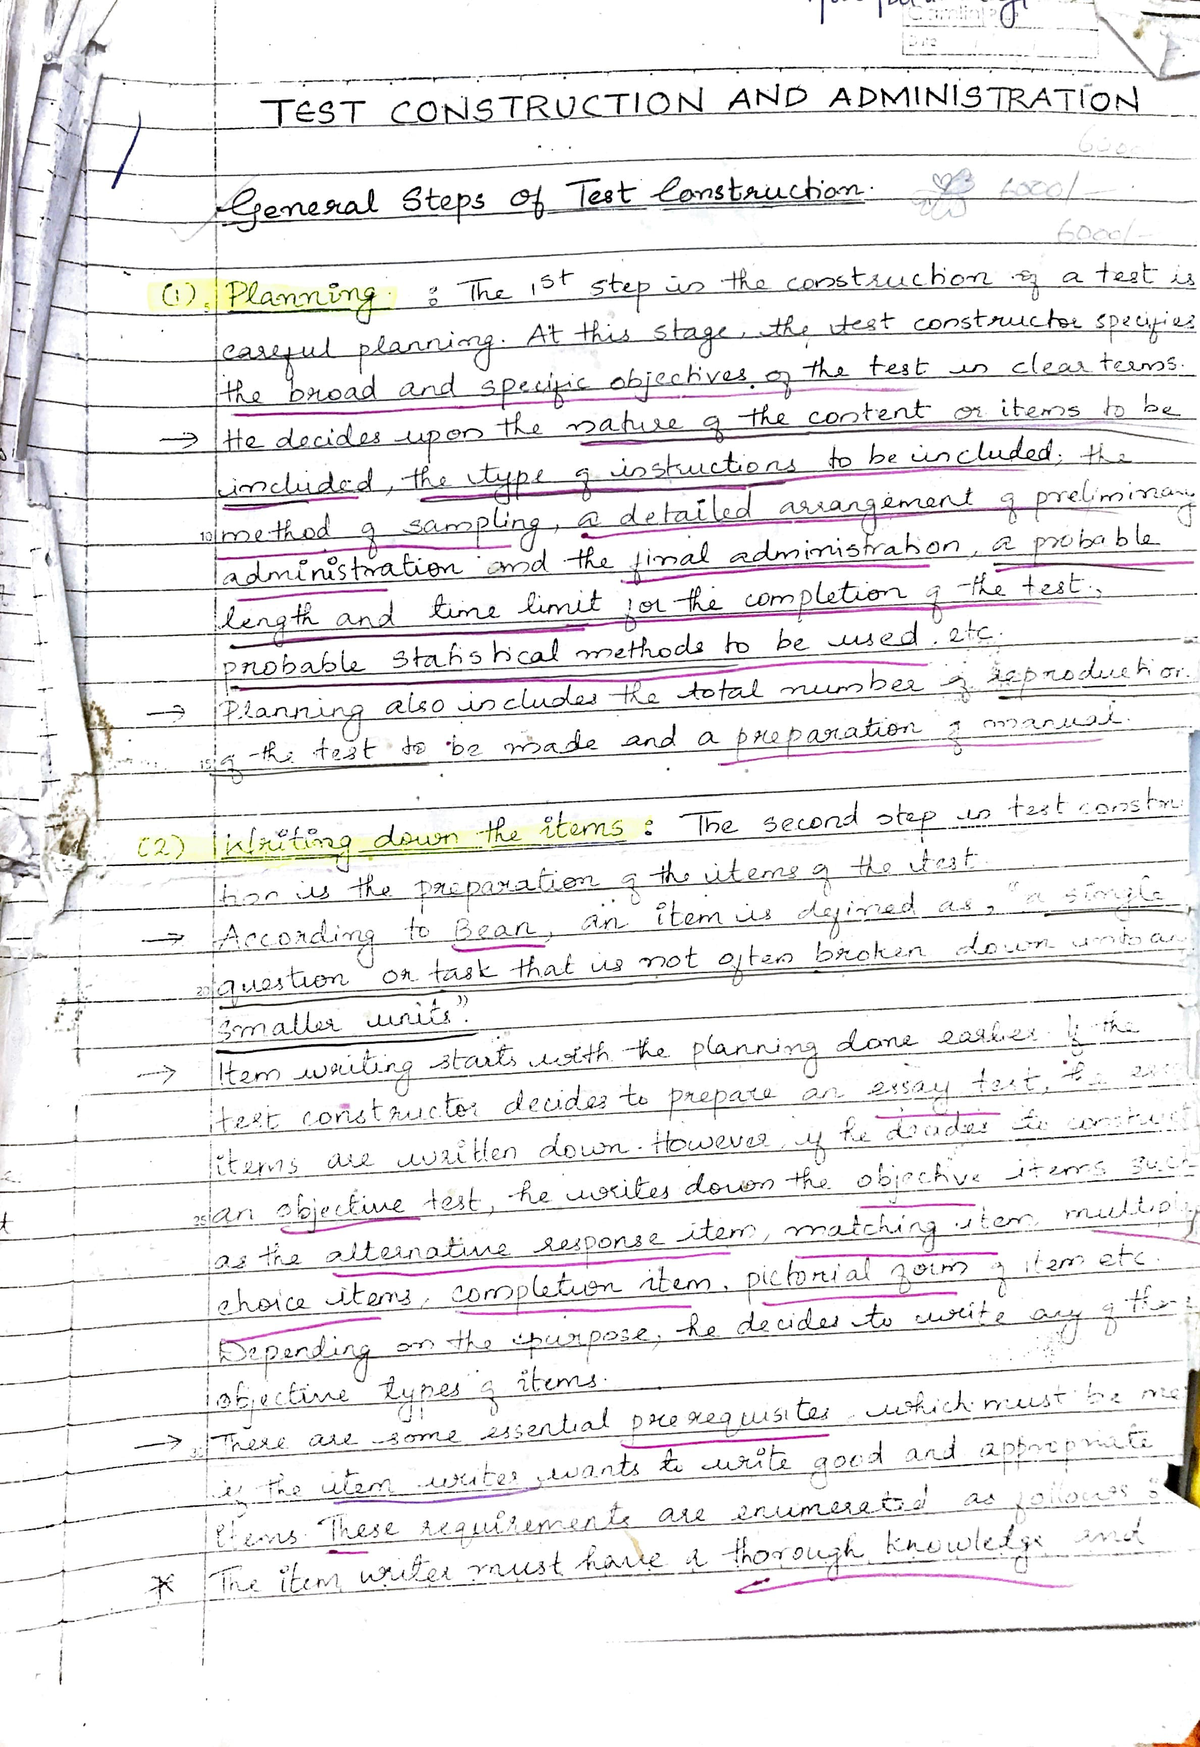 Camlin
Date
TEST CONSTRUCTION AND ADMINISTRATION
General Steps of Test Construction.
6000/-
6000/-
(1). Planning : The 1st step in the construction of a test is
careful planning. At this stage, the test constructor specifies
the broad and specific objectives of the test in clear terms.
→ He decides upon the nature of the content or items to be
included, the type of instructions to be included, the
10 method of sampling, a detailed arrangement of preliminary
administration and the final administration, a probable
length and time limit for the completion of the test,
probable statistical methods to be used. etc.
→ Planning also includes the total number of reproduction
15 of the test to be made and a preparation of manual.
(2) Writing down the items : The second step in test constru
tion is the preparation of the items of the test.
→ According to Bean, an item is defined as, "a single
20 question or task that is not often broken down into any
smaller units".
→ Item writing starts with the planning done earlier. If the
test constructor decides to prepare an essay test, the
items are written down. However, if he decides to construct
25 an objective test, he writes down the objective items such
as the alternative response item, matching item, multiple
choice items, completion item, pictorial form of item etc.
Depending on the purpose, he decides to write any of the
objective types of items.
→ There are some essential prerequisites, which must be me
if the item writer wants to write good and appropriate
items. These requirements are enumerated as follows :
* The item writer must have a thorough knowledge and